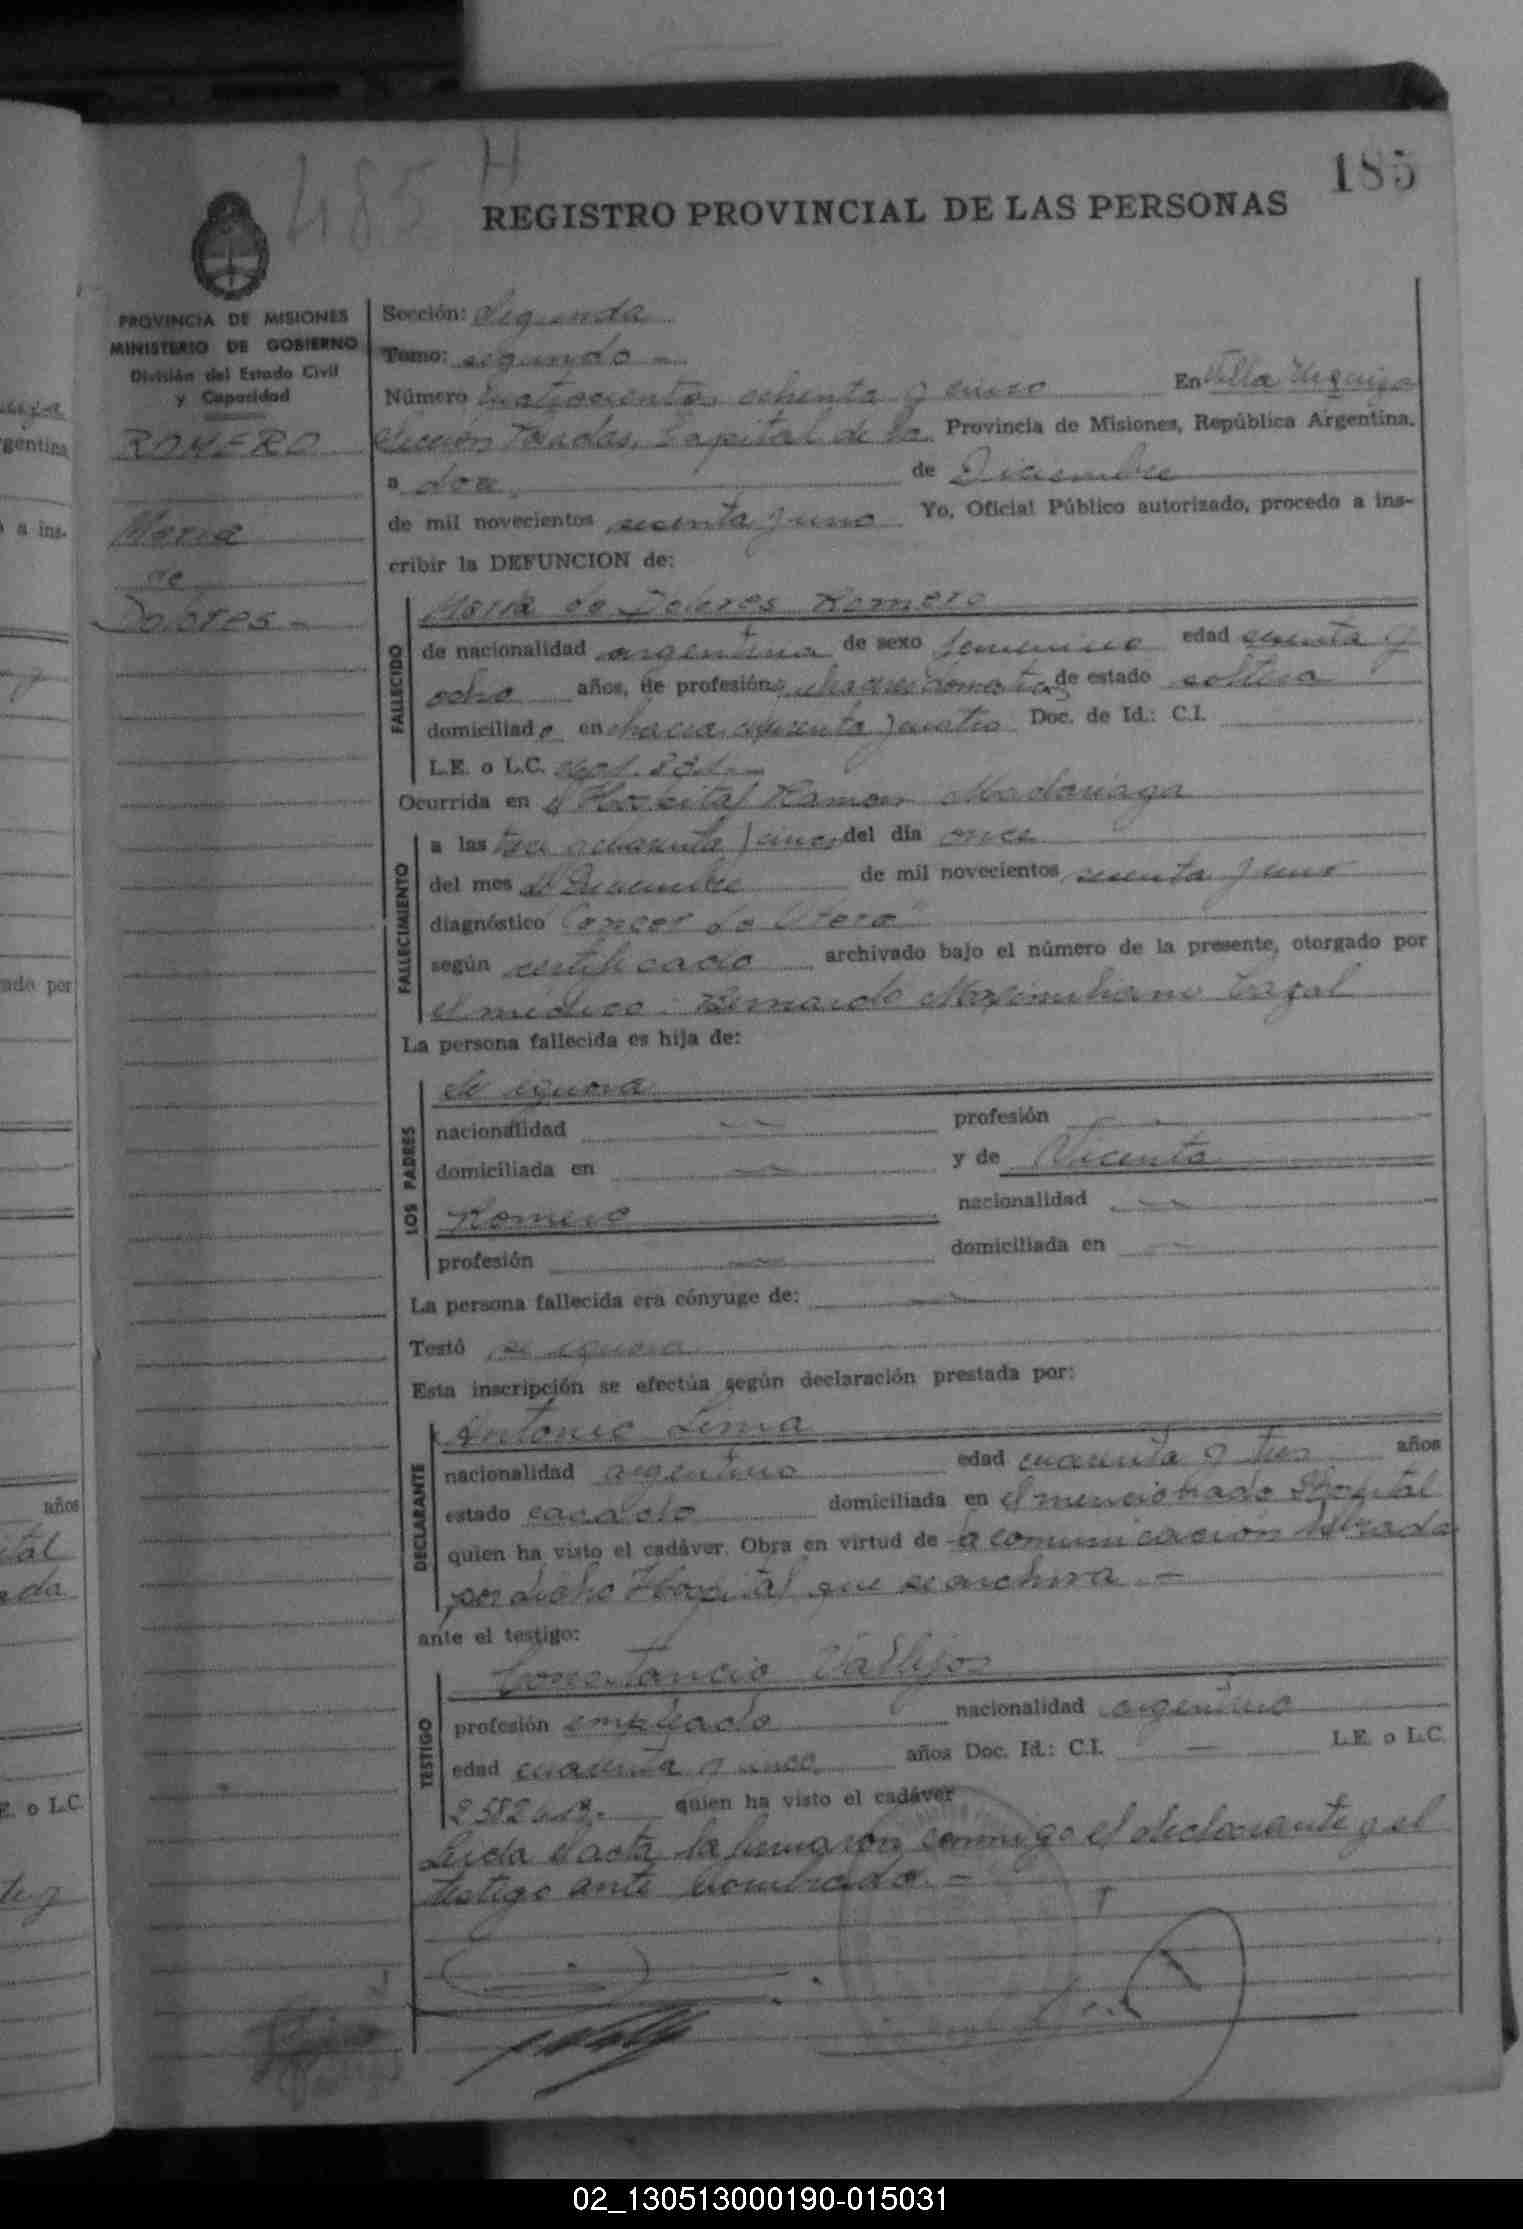 185
485 H
REGISTRO PROVINCIAL DE LAS PERSONAS
PROVINCIA DE MISIONES
MINISTERIO DE GOBIERNO
División del Estado Civil
y Capacidad
ROMERO
Maria
de
Dolores -
Sección: Segunda
Tomo: segundo -
Número cuatrocientos ochenta y cinco En Villa Urquiza
Sección Posadas, Capital de la Provincia de Misiones, República Argentina.
a doce de Diciembre
de mil novecientos sesenta y uno Yo, Oficial Público autorizado, procedo a ins-
cribir la DEFUNCION de:
FALLECIDO
Maria de Dolores Romero
de nacionalidad argentina de sexo femenino edad sesenta y
ocho años, de profesión quehaceres domesticos de estado soltera
domiciliada en chacra cuarenta y cuatro Doc. de Id.: C.I.
L.E. o L.C.
Ocurrida en el Hospital Ramon Madariaga
FALLECIMIENTO
a las tres cuarenta y cinco del día once
del mes de Diciembre de mil novecientos sesenta y uno
diagnóstico "Cancer de Utero"
según certificado archivado bajo el número de la presente, otorgado por
el medico: Bernardo Maximiliano Cazal
La persona fallecida es hija de:
LOS PADRES
Se ignora
nacionalidad — profesión
domiciliada en — y de Vicenta
Romero nacionalidad —
profesión — domiciliada en —
La persona fallecida era cónyuge de: —
Testó se ignora
Esta inscripción se efectúa según declaración prestada por:
DECLARANTE
Antonio Lima
nacionalidad argentino edad cuarenta y tres años
estado casado domiciliada en el mencionado Hospital
quien ha visto el cadáver. Obra en virtud de la comunicación librada
por dicho Hospital que se archiva -
ante el testigo:
TESTIGO
Constancio Vallejos
profesión empleado nacionalidad argentino
edad cuarenta y cinco años Doc. Id.: C.I. — L.E. o L.C.
quien ha visto el cadáver
Leida el acta la firmaron conmigo el declarante y el
testigo ante nombrado. -
02_130513000190-015031